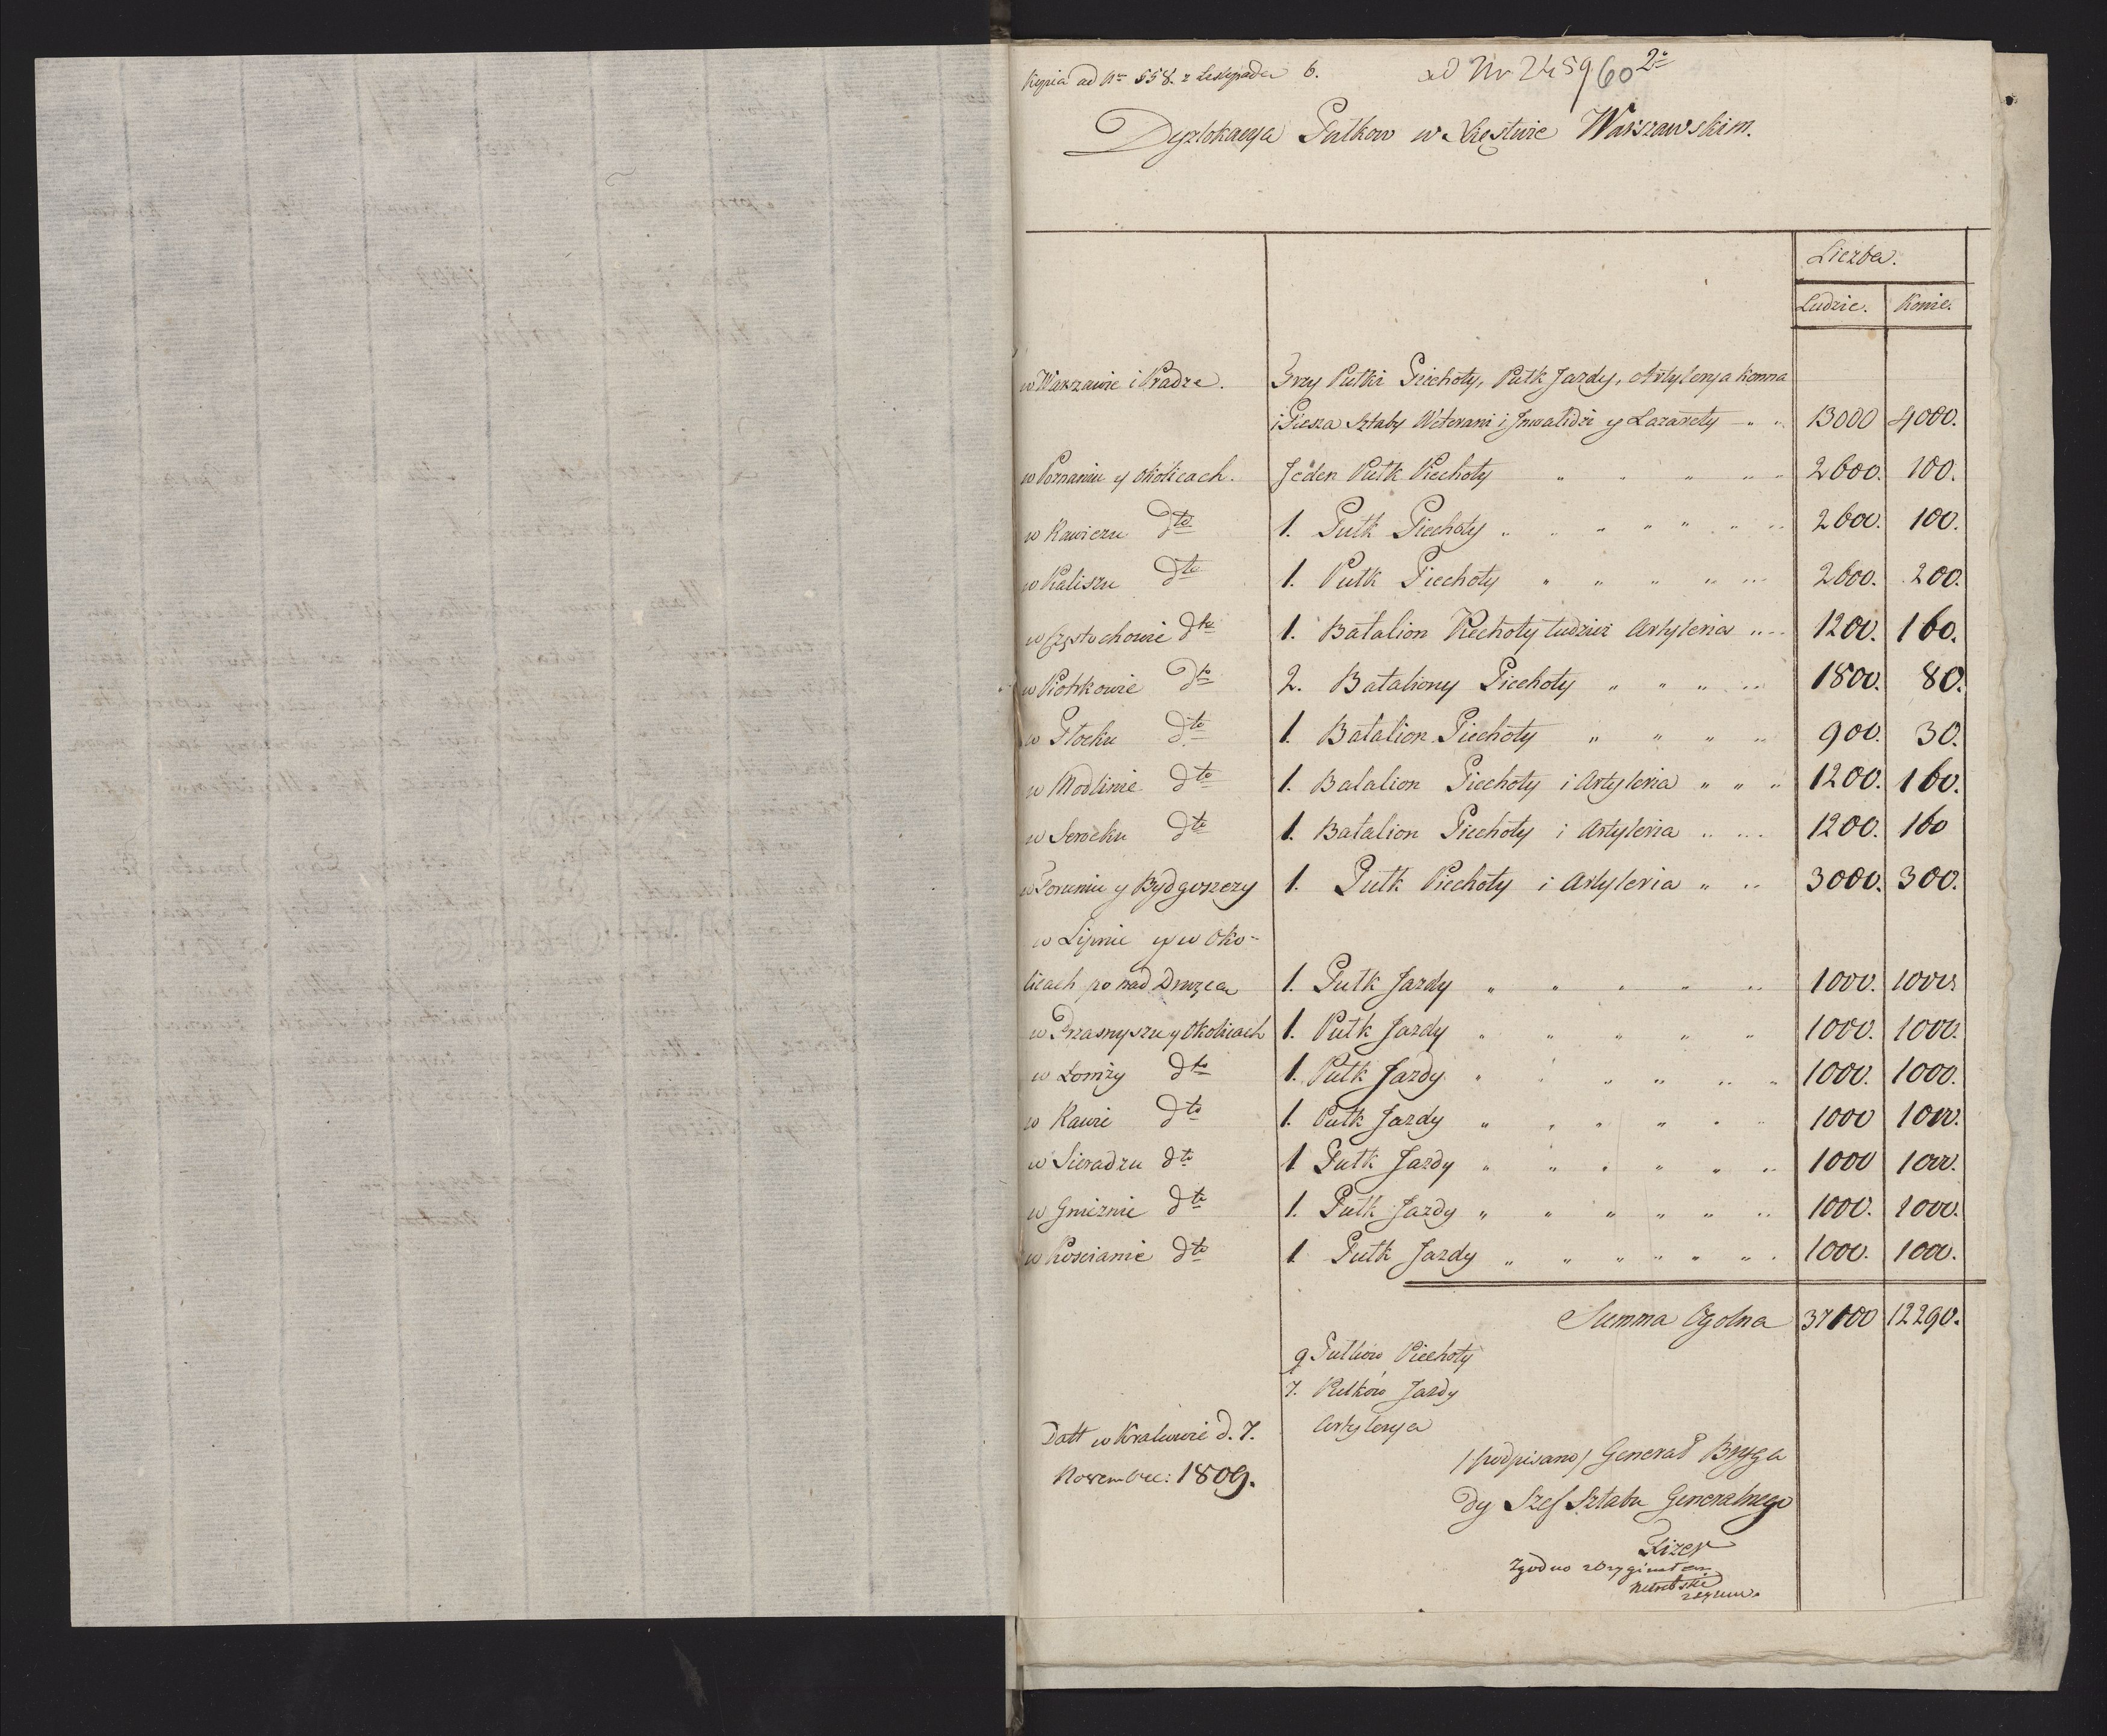 Kopia ad Nr 558. z Listopada 6. ad Nr 245960 2o
Dyzlokacya Pułkow w Xięstwie Warszawskim.
Liczba.
Ludzie. Konie.
w Warszawie i Pradze. Trzy Pułki Piechoty, Pułk Jazdy, Artylerya konna
i Piesza Sztaby Weterani i Jnwalidzi y Lazarety 13000 4000.
w Poznaniu y okolicach. Jeden Pułk Piechoty 2600. 100.
w Rawiczu dto 1. Pułk Piechoty 2600. 100.
w Kaliszu dto 1. Pułk Piechoty 2600. 200.
w Częstochowie dto 1. Batalion Piechoty tudzież Artyleria 1200. 160.
w Piotrkowie dto 2. Bataliony Piechoty 1800. 80.
w Płocku dto 1. Batalion Piechoty 900. 30.
w Modlinie dto 1. Batalion Piechoty i Artyleria 1200. 160.
w Serocku dto 1. Batalion Piechoty i Artyleria 1200. 160
w Toruniu y Bydgoszczy 1. Pułk Piechoty i Artyleria 3000. 300.
w Lipnie y w oko-
licach po nad Drwęcą 1. Pułk Jazdy 1000. 1000.
w Przasnyszu y okolicach 1. Pułk Jazdy 1000. 1000.
w Łomży dto 1. Pułk Jazdy 1000. 1000.
w Rawie dto 1. Pułk Jazdy 1000 1000.
w Sieradzu dto 1 Pułk Jazdy 1000 1000.
w Gnieznie dto 1. Pułk Jazdy 1000. 1000.
w Koscianie dto 1 Pułk Jazdy 1000. 1000.
Summa Ogolna 37100 12290.
9 Pułkow Piechoty
7. Pułków Jazdy
Artylerya
Datt w Krakowie d. 7.
Novembre: 1809.
/podpisano/ Generał Bryga
dy Szef Sztabu Generalnego
Zgodno z Oryginałem